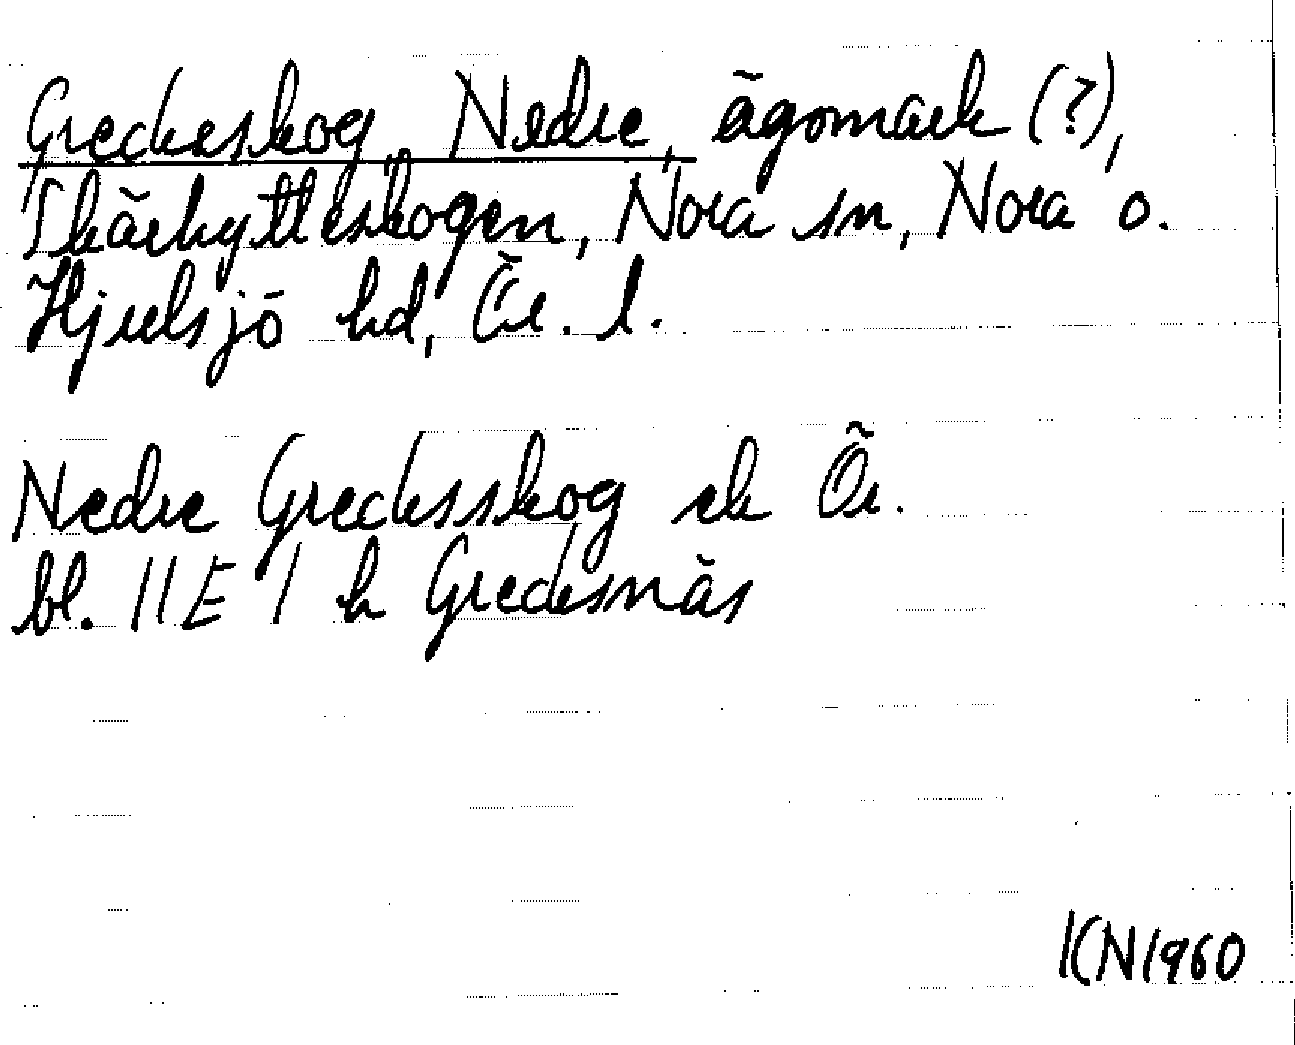 Greckesskog, Nedre, ägomark (?),
Skärhytteskogen, Nora sn, Nora o.
Hjulsjö hd, Ör. l.
Nedre Grecksskog ek Ör.
bl. 11E 1 h Grecksnäs
KN 1960